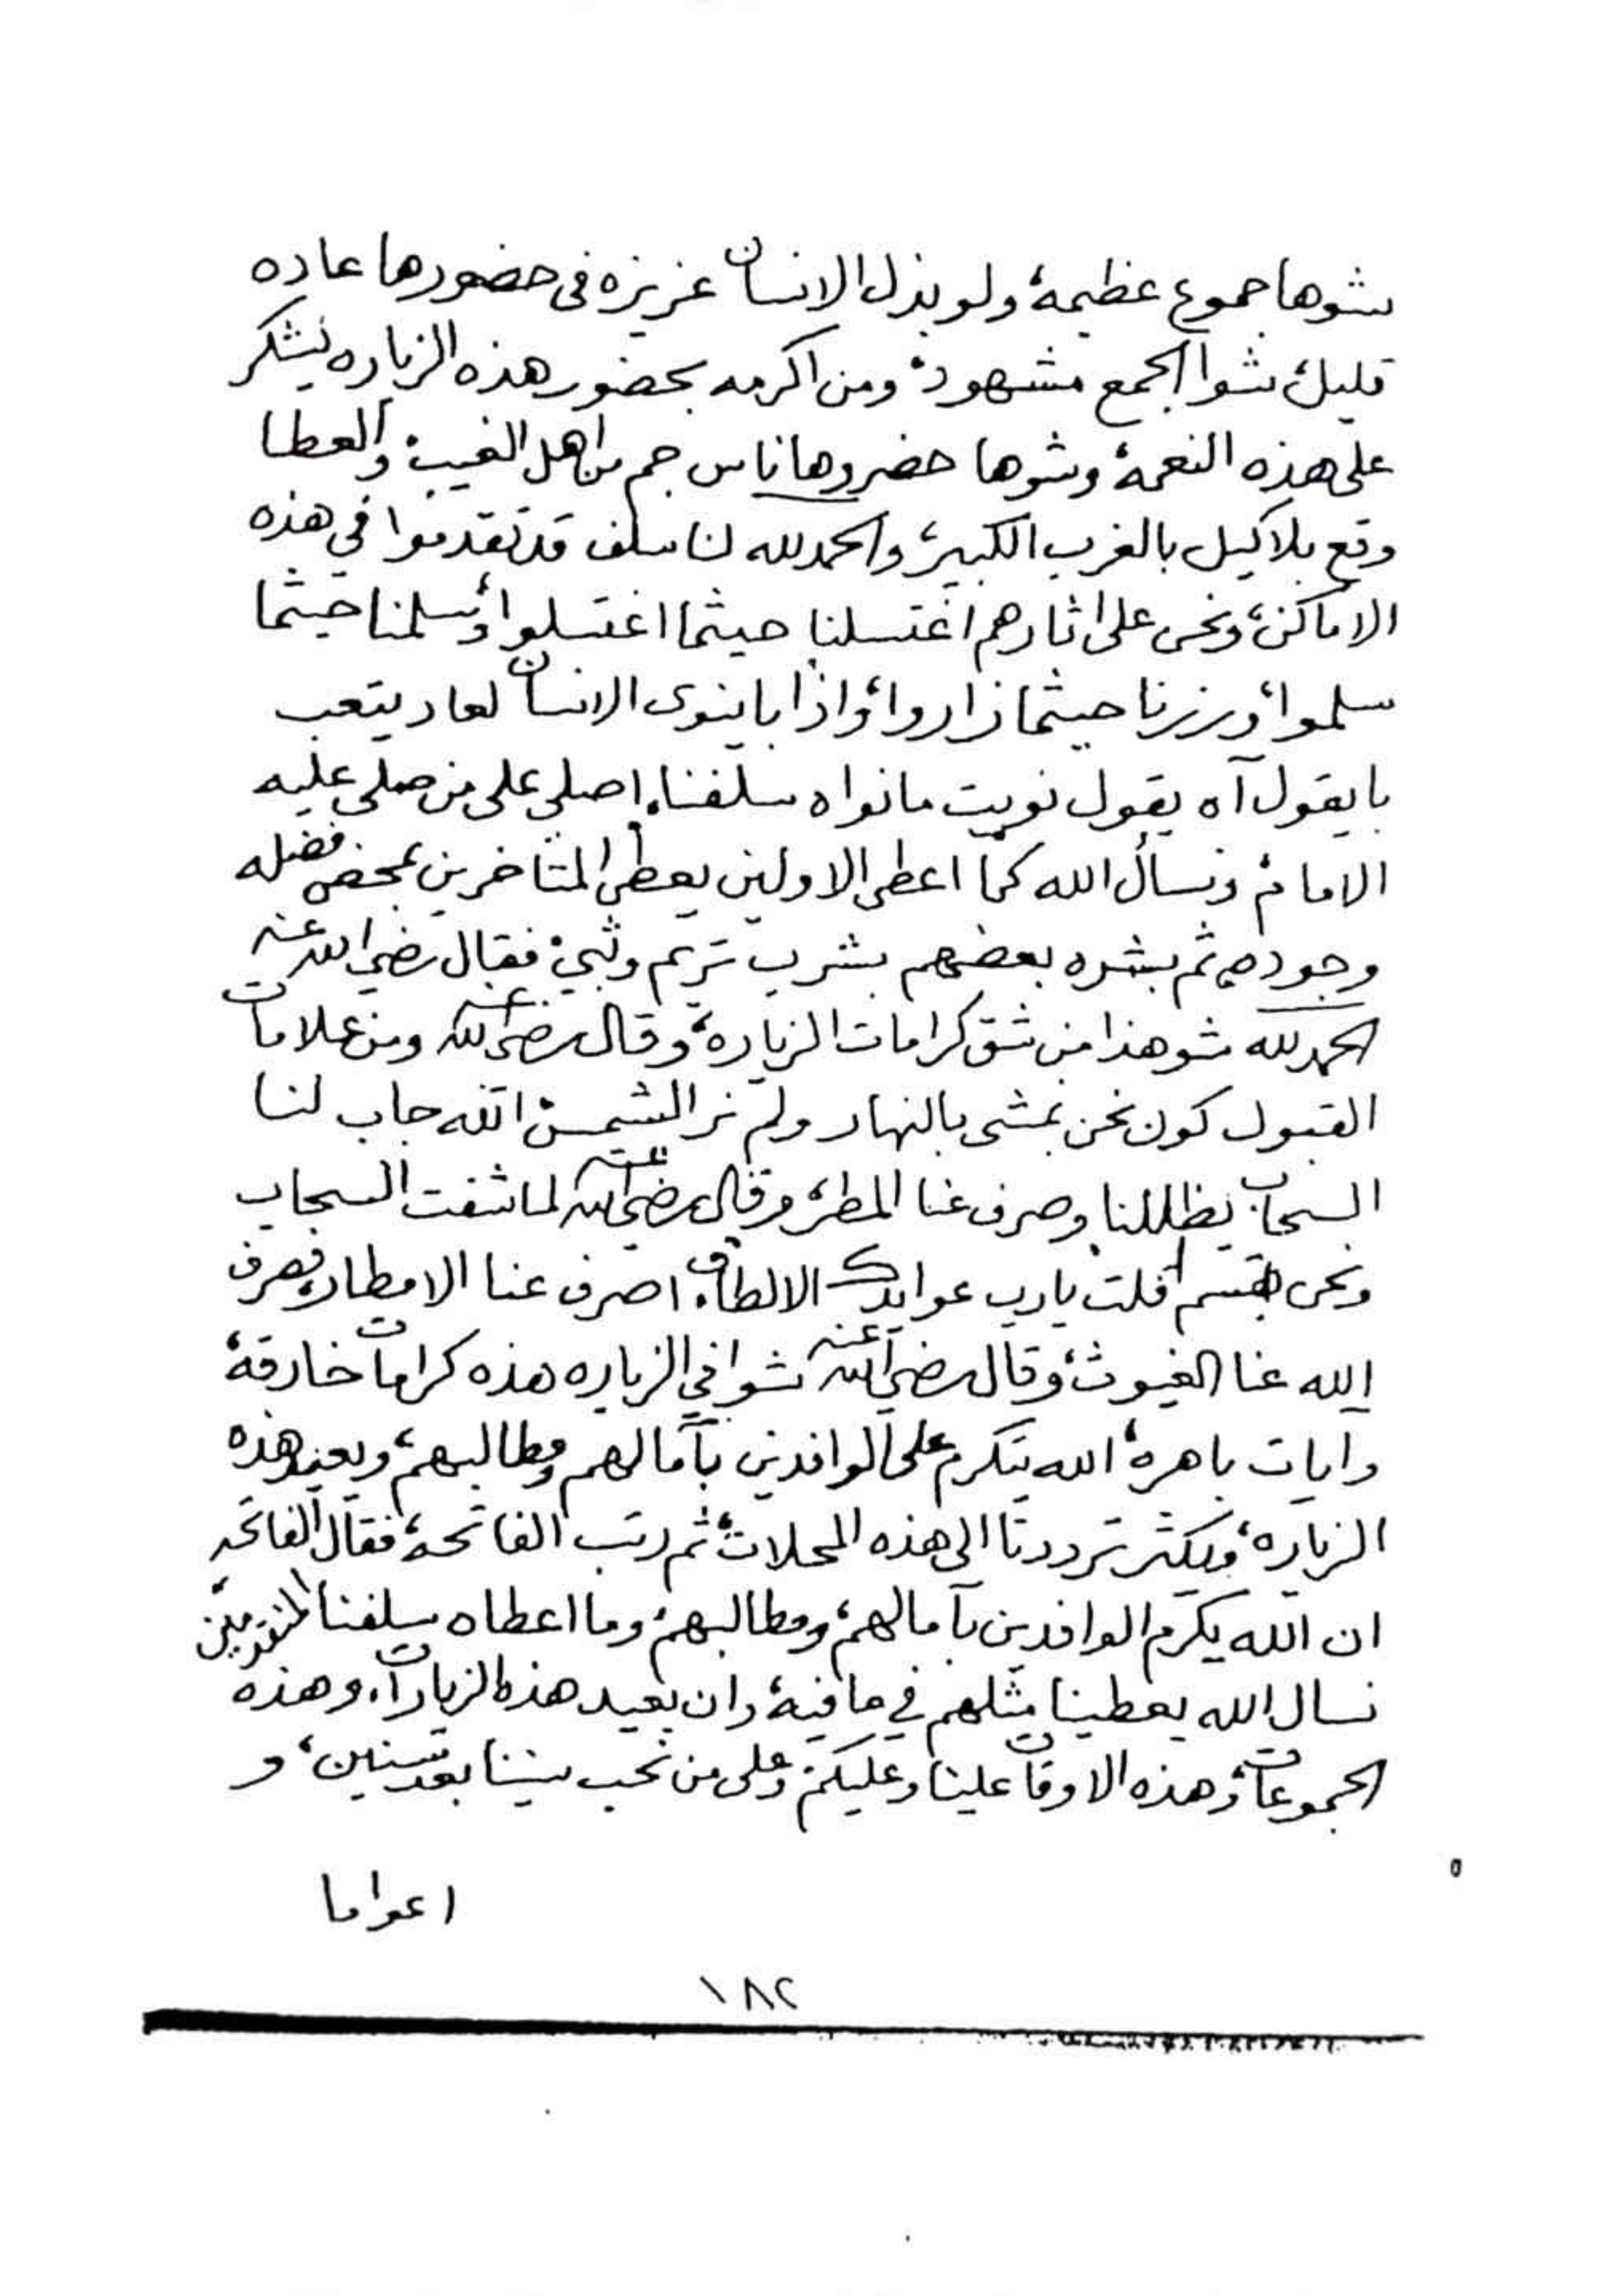 شوها جموع عظيمة، ولو بذل الانسان عزيزه في حضورها عاده
قليل، شوا الجمع مشهود، ومن اكرمه بحضور هذه الزياره يشكر
على هذه النعمة، وشوها حضروها ناس جم من اهل الغيب، والعطا
وقع بلا كيل بالغرب الكبير، والحمد لله لنا سلف قد تقدموا في هذه
الاماكن، ونحن على اثارهم اغتسلنا حيثما اغتسلوا، وسلمنا حيثما
سلموا، وزرنا حيثما زاروا، واذا با ينوى الانسان لعاد يتعب
با يقول آه يقول نويت ما نواه سلفنا، اصلي على من صلى عليه
الامام، ونسأل الله كما اعطى الاولين يعطي المتأخرين بمحض فضله
وجوده، ثم بشره بعضهم بشرب تريم وثبي، فقال رضي الله عنه
الحمد لله شو هذا من شق كرامات الزيارة، وقال رضي الله عنه ومن علامات
القبول كون نحن نمشي بالنهار ولم نر الشمس، الله جاب لنا
السحاب يظللنا وصرف عنا المطر، وقال رضي الله عنه لما شفت السحاب
ونحن بقسم قلت يا رب عوايدك الالطاف، اصرف عنا الامطار، فصرف
الله عنا الغيوث، وقال رضي الله عنه شوا في الزياره هذه كرامات خارقة،
وايات باهرة، الله يتكرم على الوافدين بآمالهم ومطالبهم، ويعيد هذه
الزيارة، ويكثر ترددنا الى هذه المحلات، ثم رتب الفاتحة، فقال الفاتحه
ان الله يكرم الوافدين بآمالهم، ومطالبهم، وما اعطاه سلفنا المتقدمين
نسال الله يعطينا مثلهم في عافية، وان يعيد هذه الزيارات، وهذه
الجموعات، وهذه الاوقات علينا وعليكم، وعلى من نحب سنينا بعد سنين، و
اعواما
١٨٢